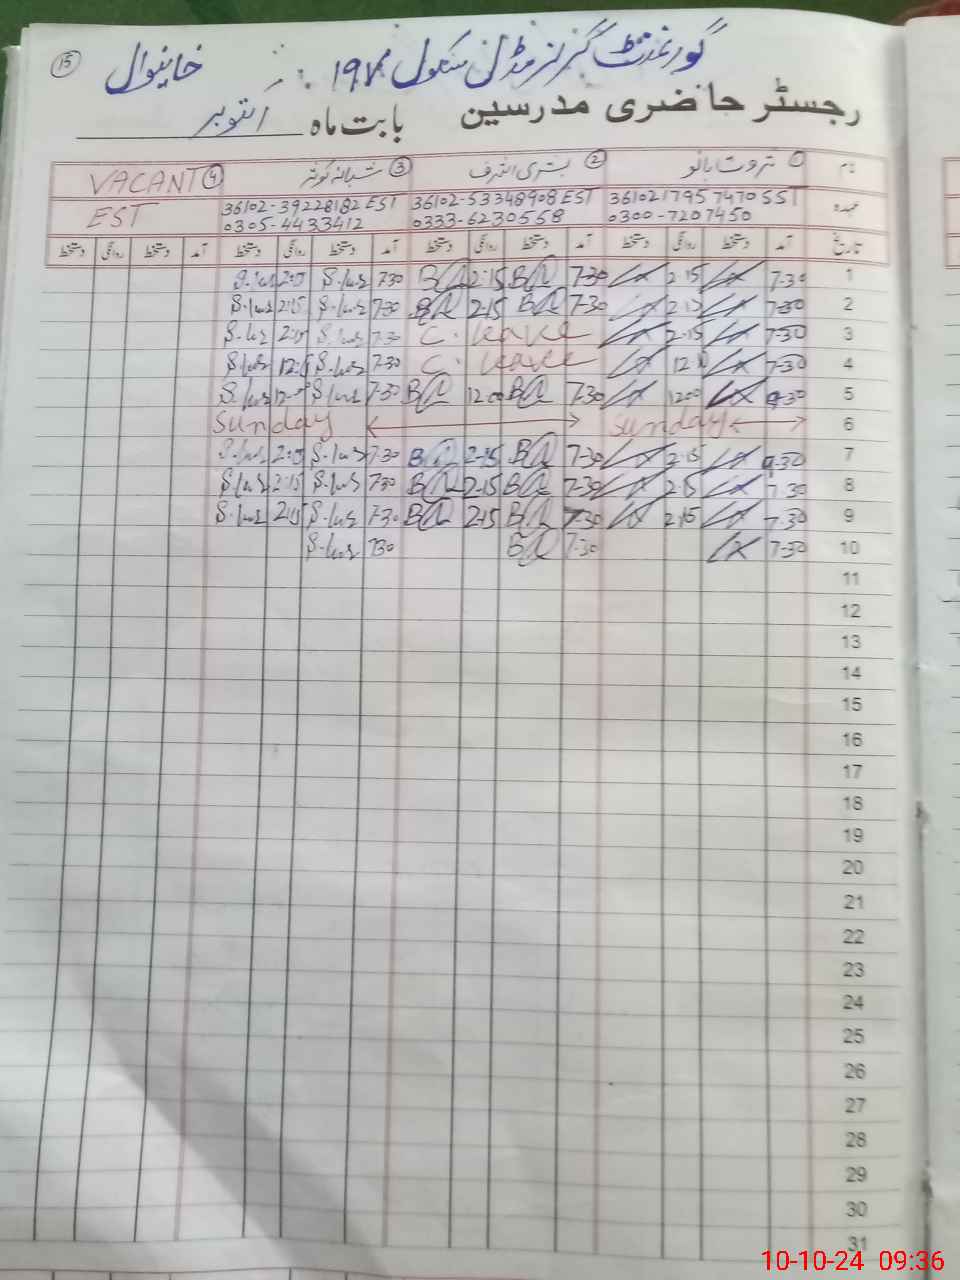 گورنمنٹ گرلز مڈل سکول ۱۹۷ خانیوال
15
رجسٹر حاضری مدرسین بابت ماہ اکتوبر
نام ① ثروت بانو ② بشری اشرف ③ شبانہ کوثر ④ VACANT
عہدہ 3610217957470 SST 36102-53348908 EST 36102-39228182 EST EST
0300-7207450 0333-6230558 0305-4433412
تاریخ آمد دستخط روانگی دستخط آمد دستخط روانگی دستخط آمد دستخط روانگی دستخط آمد دستخط روانگی دستخط
1 7-30 2-15 7-30 2-15 7-30 2-15
2 7-30 2-15 7-30 2-15 7-30 2-15
3 7-30 2-15 C. leave 7-30 2-15
4 7-30 C. leave 7-30
5 7-30 1200 7-30 12-00 7-30 12-00
6 Sunday Sunday
7 7-30 2-15 7-30 2-15 7-30 2-15
8 7-30 2-15 7-30 2-15 7-30 2-15
9 7-30 2-15 7-30 2-15 7-30 2-15
10 7-30 7-30 7-30
11
12
13
14
15
16
17
18
19
20
21
22
23
24
25
26
27
28
29
30
31
10-10-24 09:36